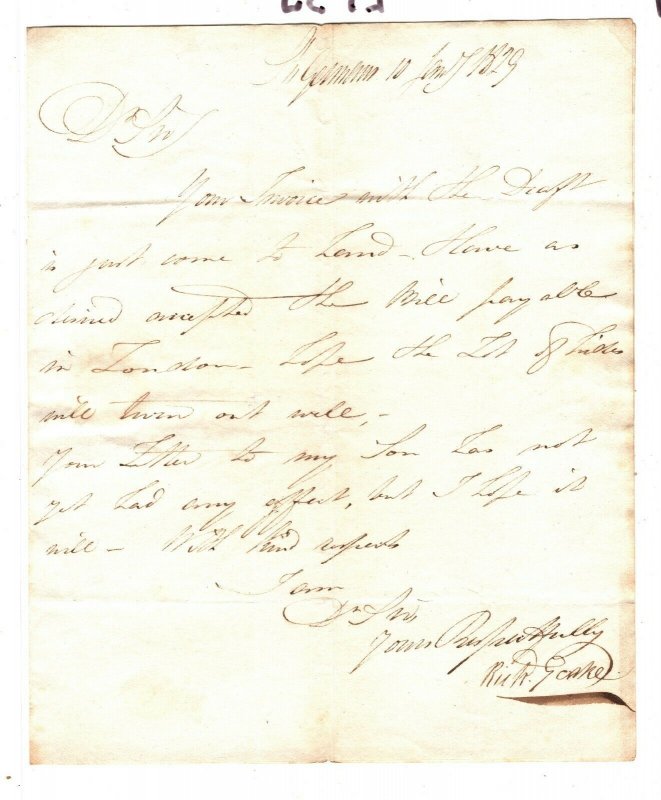 St Germans 10 Jany 1829
Dr Sir
Your Invoice with the Draft
is just come to hand - Have as
desired accepted the Bill payable
in London - hope the Lot of hides
will turn out well, -
Your Letter to my Son has not
yet had any effect, but I hope it
will - With kind respects
I am
Dr Sir
Yours Respectfully
Richd. Geake